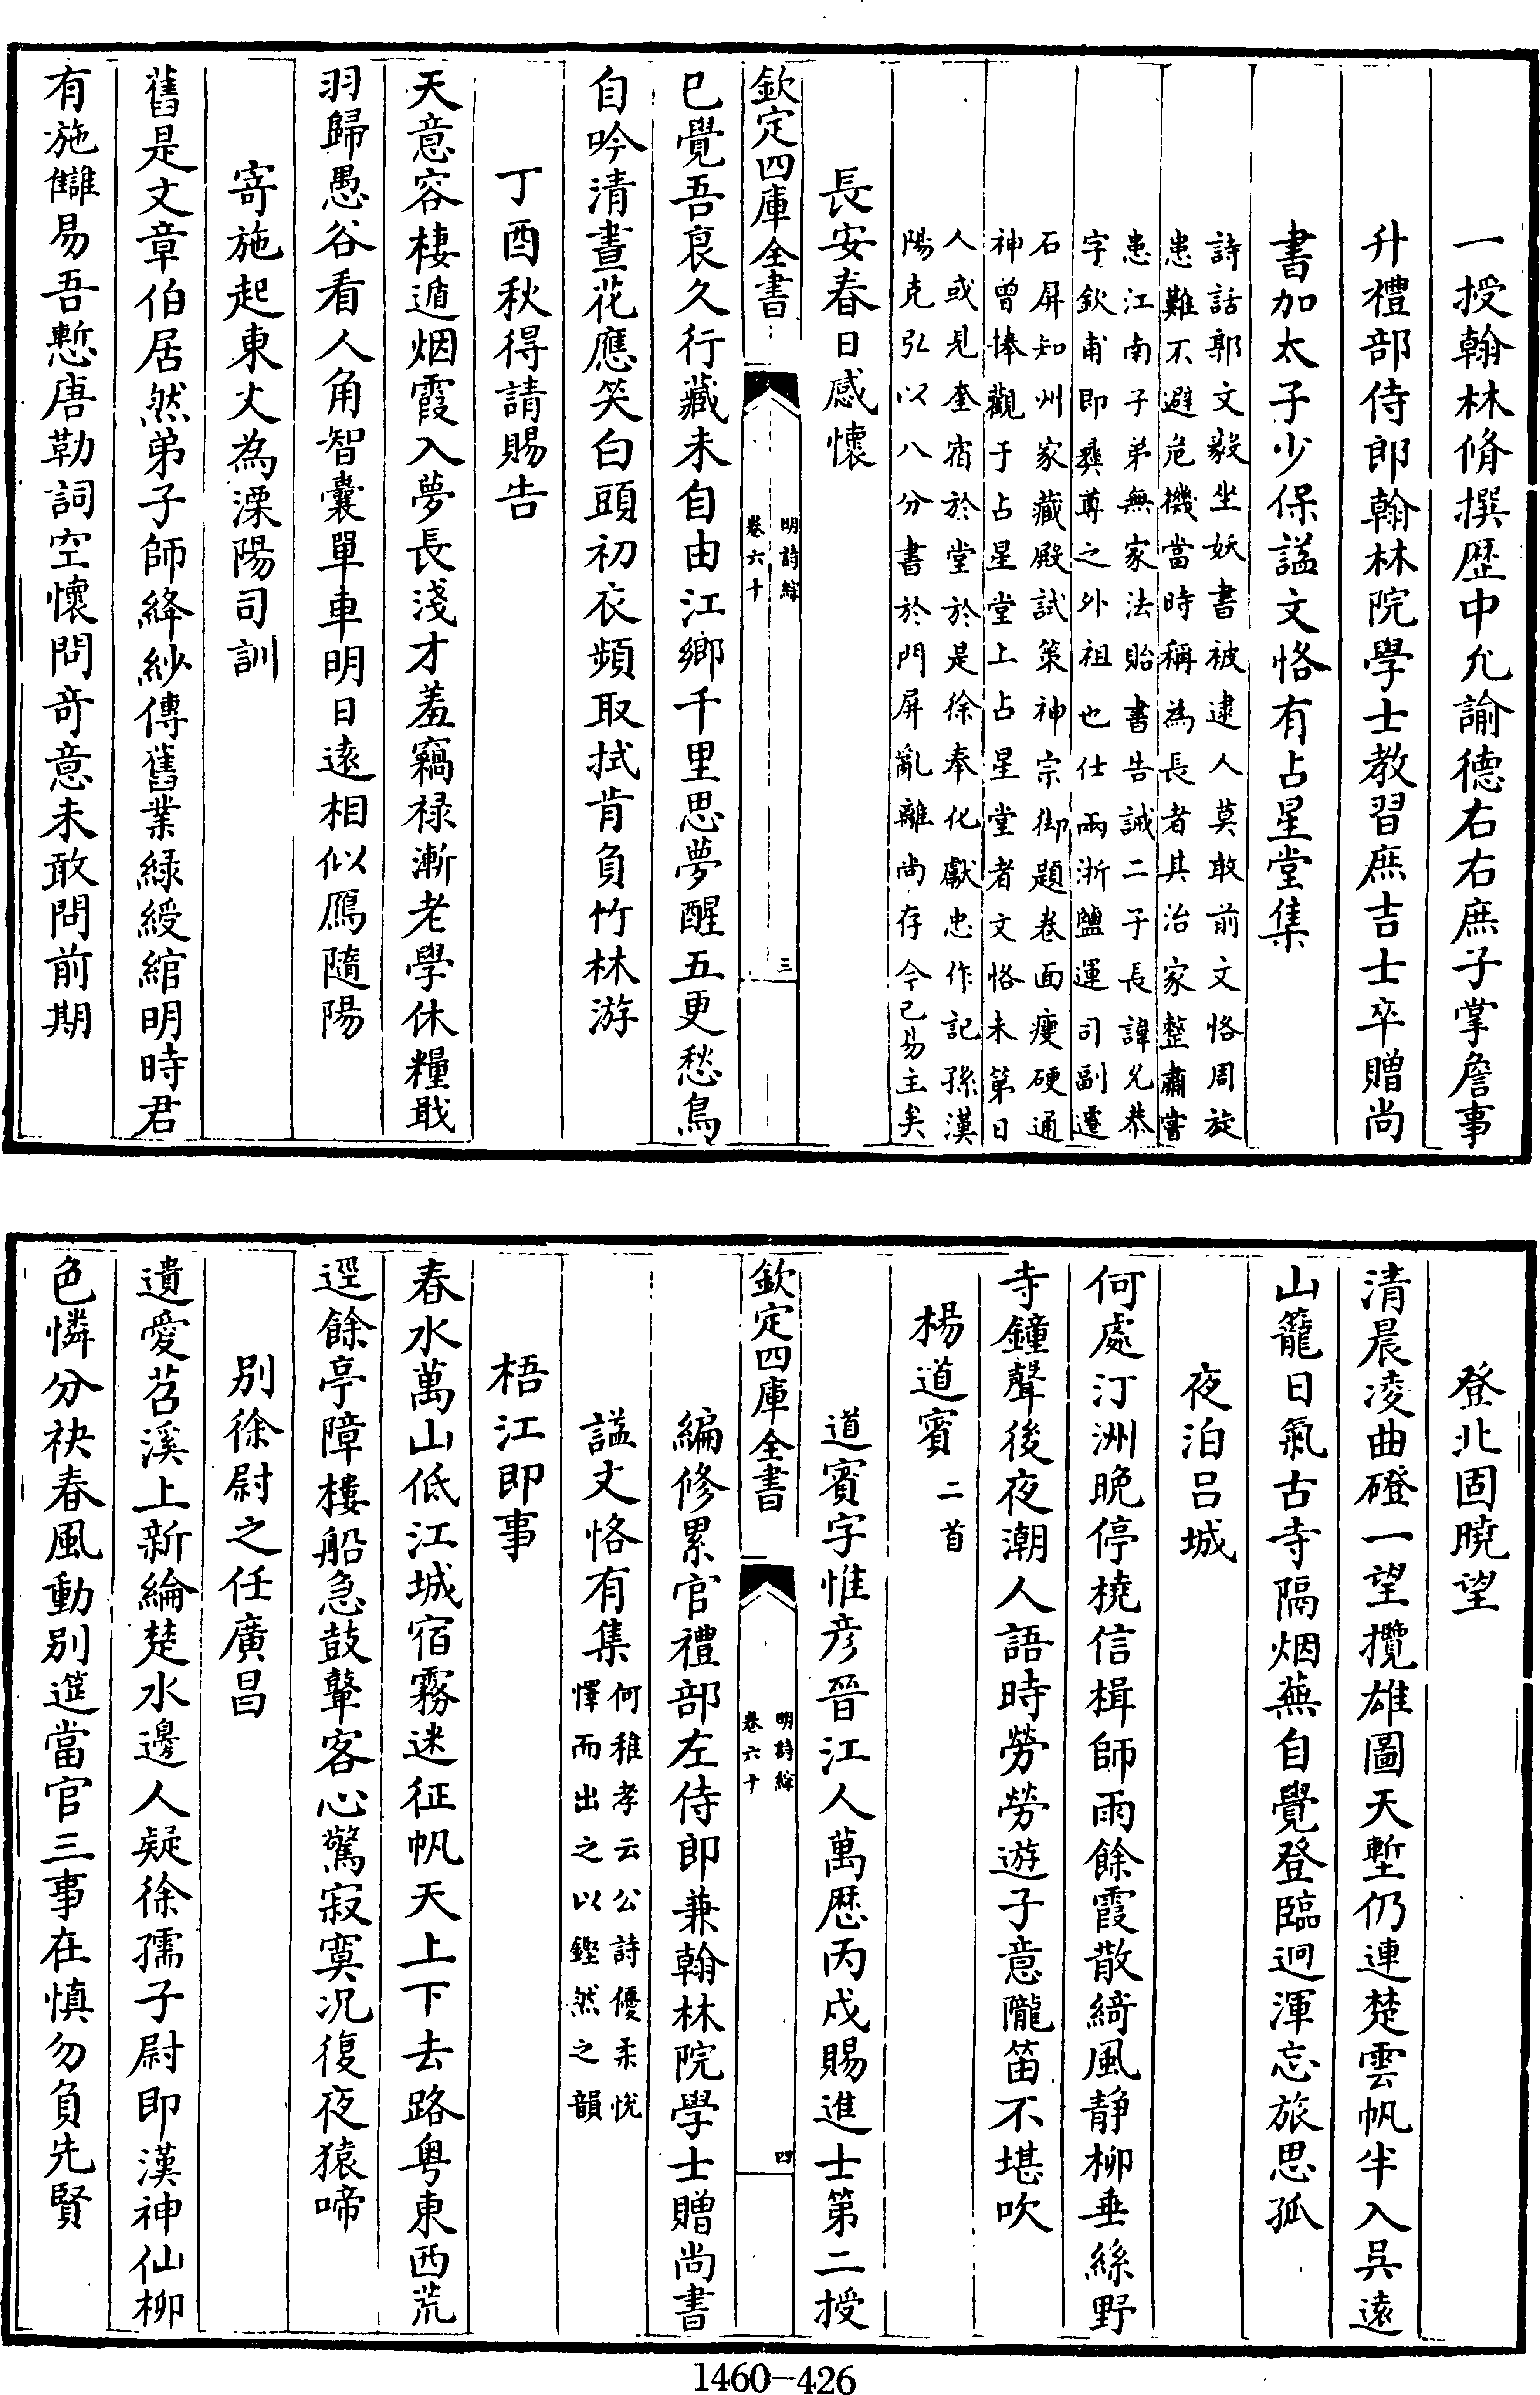 一授翰林脩撰歴中允諭德右右庶子掌詹事
升禮部侍郎翰林院學士教習庶吉士卒贈尚
書加太子少保諡文恪有占星堂集
詩話郭文毅坐妖書被逮人莫敢前文恪周旋
患難不避危機當時稱為長者其治家整肅嘗
恚江南子弟無家法貽書告誡二子長諱兄恭
字欽甫即彝尊之外祖也仕兩浙鹽運司副遷
石屏知州家藏殿試策神宗御題卷面瘦硬通
神曾捧觀于占星堂上占星堂者文恪未第日
人或見奎宿於堂於是徐奉化獻忠作記孫漢
陽克弘以八分書於門屏亂離尚存今已易主矣
長安春日感懷
欽定四庫全書
明詩綜
卷六十
三
已覺吾衰久行藏未自由江鄉千里思夢醒五更愁鳥
自吟清晝花應笑白頭初衣頻取拭肯負竹林游
丁酉秋得請賜告
天意容棲遁烟霞入夢長淺才羞竊禄漸老學休糧戢
羽歸愚谷看人角智囊單車明日遠相似鴈隨陽
寄施起東丈為溧陽司訓
舊是文章伯居然弟子師絳紗傳舊業緑綬綰明時君
有施讎易吾慙唐勒詞空懷問奇意未敢問前期
登北固曉望
清晨凌曲磴一望攬雄圖天塹仍連楚雲帆半入吳遠
山籠日氣古寺隔烟蕪自覺登臨迥渾忘旅思孤
夜泊吕城
何處汀洲晚停橈信楫師雨餘霞散綺風静柳垂絲野
寺鐘聲後夜潮人語時勞勞遊子意隴笛不堪吹
楊道賓二首
道賓字惟彦晉江人萬歴丙戌賜進士第二授
欽定四庫全書
明詩綜
卷六十
四
編修累官禮部左侍郎兼翰林院學士贈尚書
諡文恪有集
何稚孝云公詩優柔悅
懌而出之以鏗然之韻
梧江即事
春水萬山低江城宿霧迷征帆天上下去路粤東西荒
逕餘亭障樓船急鼓鼙客心驚寂寞况復夜猿啼
别徐尉之任廣昌
遺愛苕溪上新綸楚水邊人疑徐孺子尉即漢神仙柳
色憐分袂春風動别筵當官三事在慎勿負先賢
1460-426